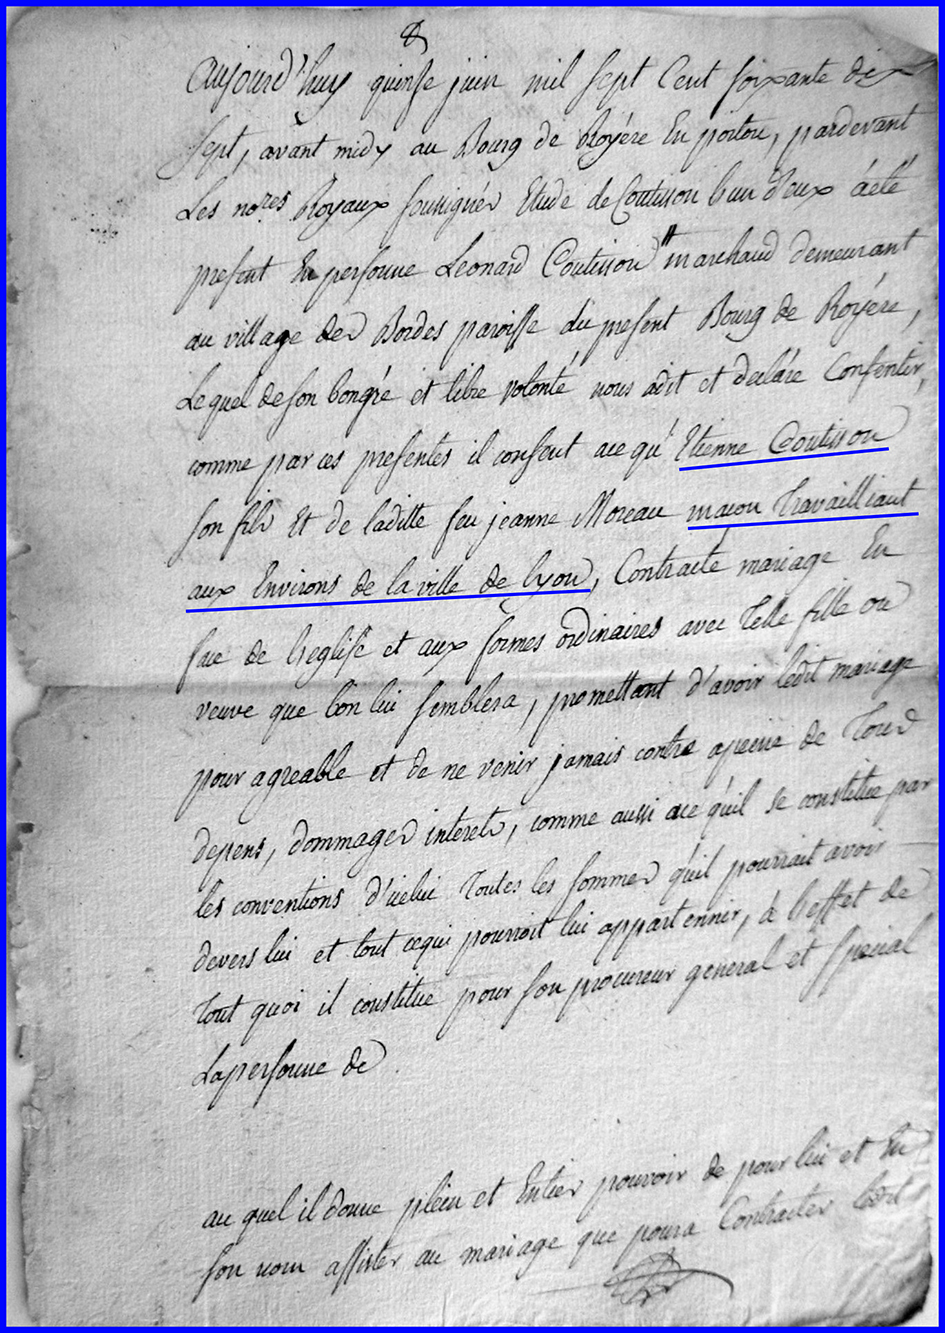 8
Aujourd'huy quinse juin mil sept Cent soixante dix
sept, avant midy au Bourg de Royére En poitou, pardevant
Les no.res Royaux soussignés Etude de Coutisson l'un d'eux aété
present En personne Leonard Coutisson " marchand demeurant
au village des Bordes paroisse du present Bourg de Royére,
Lequel de son bongré et libre volonté nous adit et declare Consentir,
comme par ces presentes il consent ace qu'Etienne Coutisson
son fils Et de laditte feu jeanne Moreau macon Travailliant
aux Environs de la ville de Lyon, Contracte mariage En
face de l'eglise et aux formes ordinaires avec Telle fille ou
veuve que bon lui semblera, promettant d'avoir ledit mariage
pour agreable et de ne venir jamais contre apeine de Tous
depens, dommages interets, comme aussi ace qu'il se constitue par
les conventions d'icelui Toutes les sommes qu'il pourrait avoir
devers lui et tout cequi pourroit lui appartennir, a l'effet de
Tout quoi il constitue pour son procureur general et special
Lapersonne de
au quel il donne plein et Entier pouvoir de pour lui et En
son nom assister au mariage que poura Contracter ledit